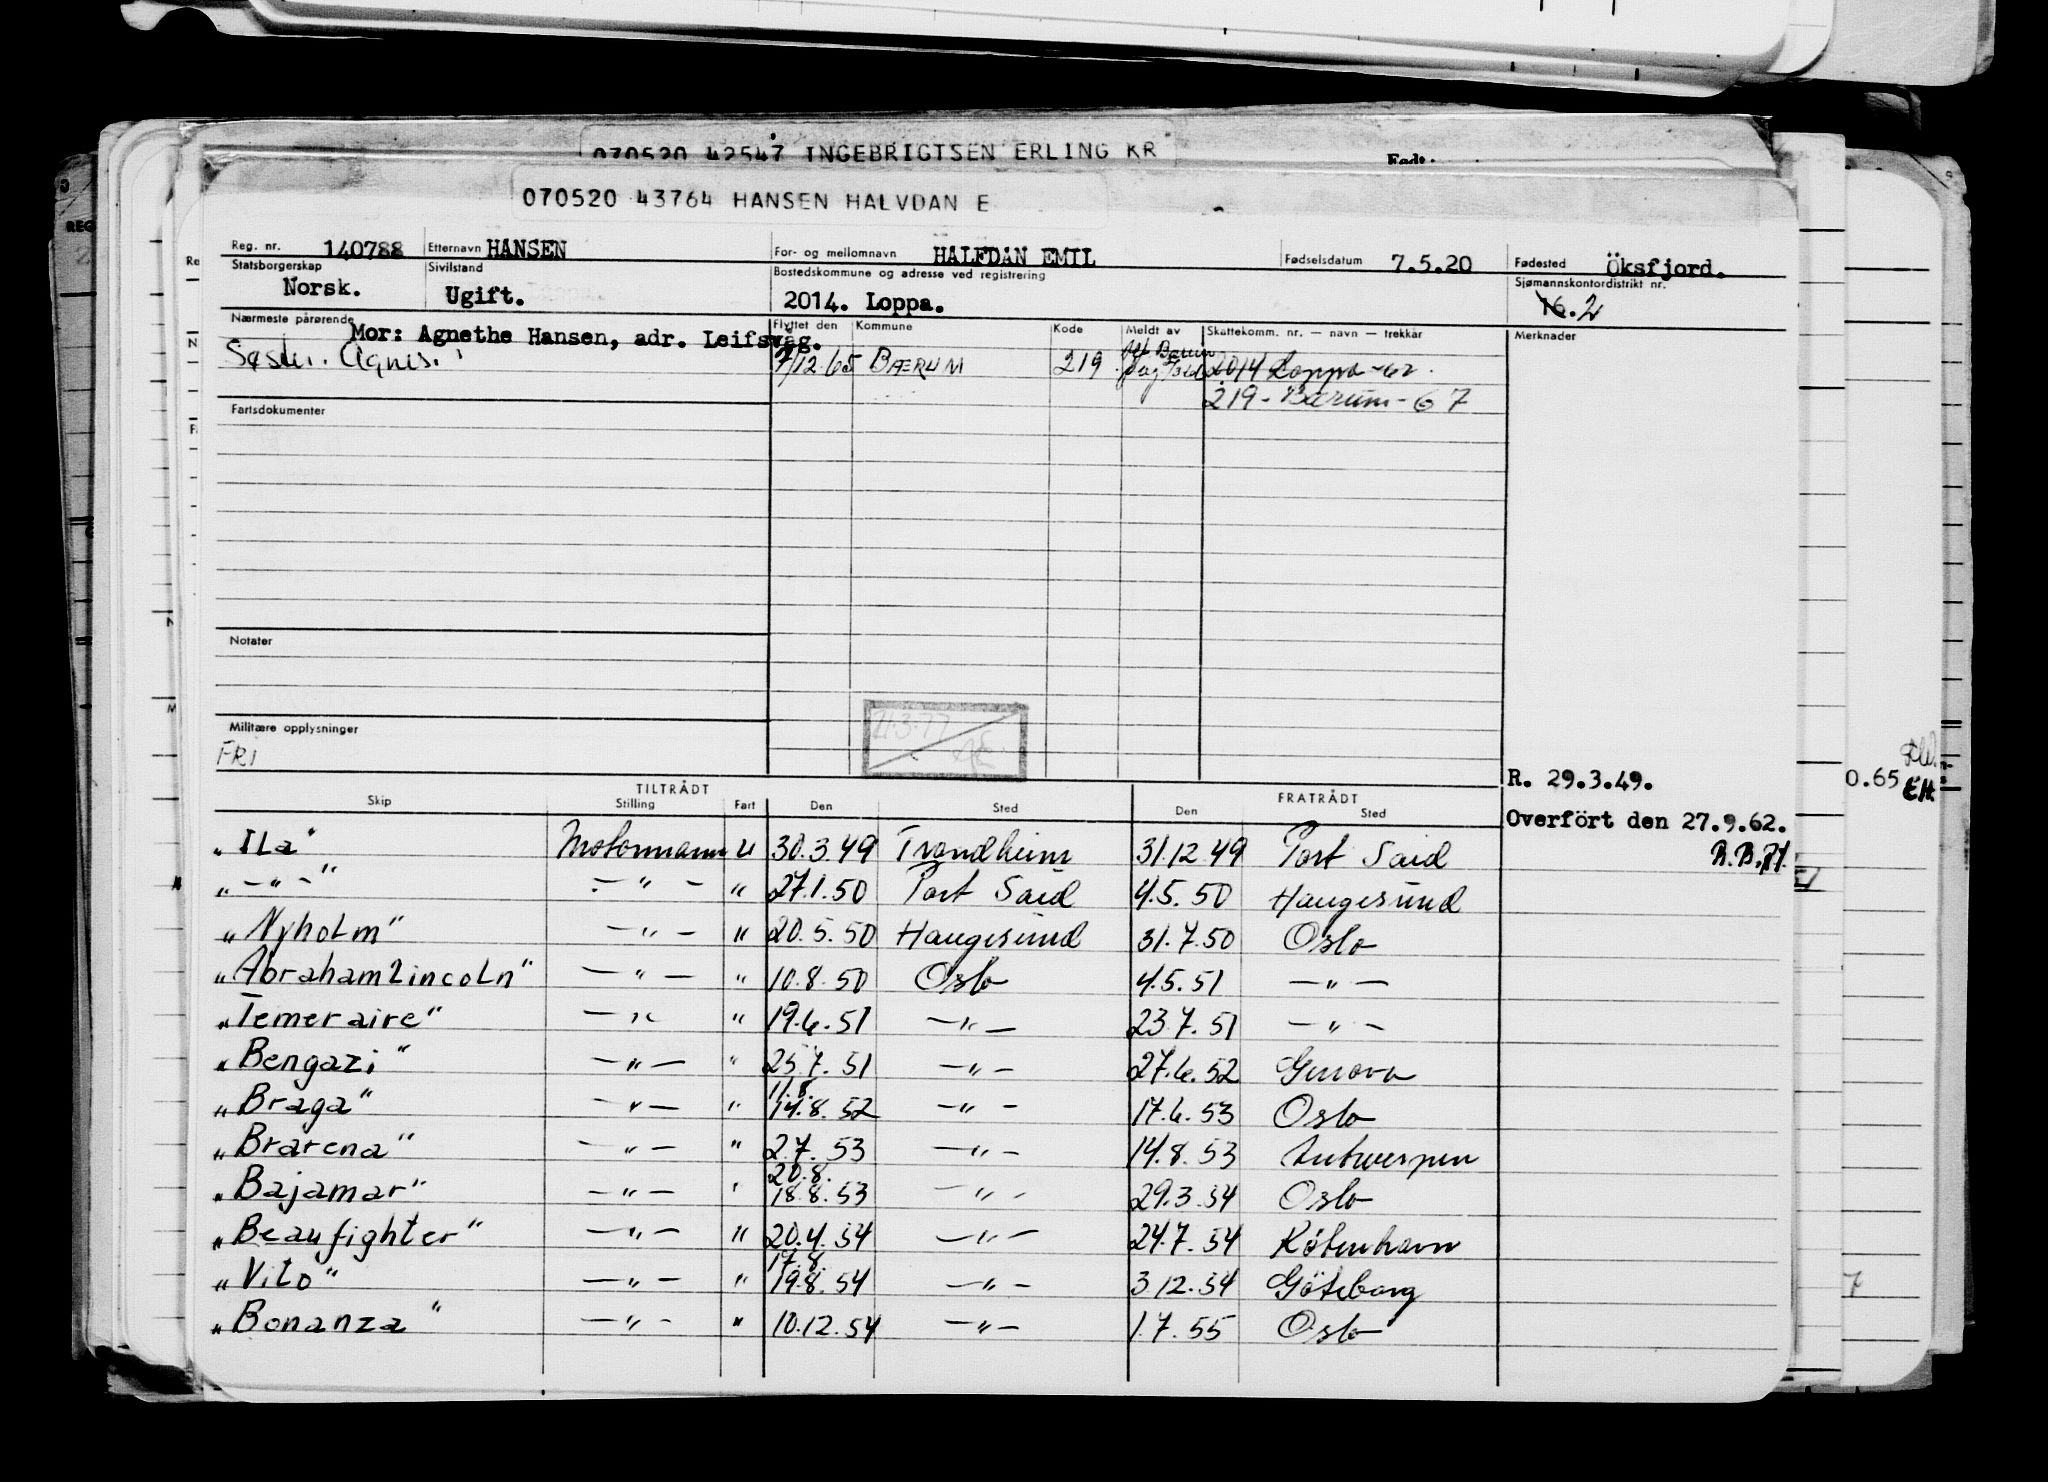 070520 42547 INGEBRIGTSEN ERLING KR
Født:
070520 43764 HANSEN HALVDAN E
Reg. nr. 140788 Etternavn HANSEN For- og mellomnavn HALFDAN EMIL Fødselsdatum 7.5.20 Fødested Öksfjord.
Statsborgerskap Sivilstand Bostedskommune og adresse ved registrering Sjømannskontordistrikt nr.
Norsk. Ugift. 2014. Loppa. 16. 2
Nærmeste pårørende Flyttet den Kommune Kode Meldt av Skattekomm. nr. — navn — trekkår Merknader
Mor: Agnethe Hansen, adr. Leifsvåg.
Søster. Agnes. 7/12.65 BÆRUM 219 2014 Loppa - 62.
219 - Bærum - 67
Fartsdokumenter
Notater
Militære opplysninger
21.3.77
FRI
R. 29.3.49.
0.65 EH.
TILTRÅDT FRATRÅDT
Skip Stilling Fart Den Sted Den Sted
Overfört den 27.9.62.
R.B.H.
„ILa" Motormann U 30.3.49 Trondheim 31.12.49 Port Said
„-"-" -"- " 27.1.50 Port Said 4.5.50 Haugesund
„Nyholm" -"- " 20.5.50 Haugesund 31.7.50 Oslo
„Abraham Lincoln" -"- " 10.8.50 Oslo 4.5.51 -"-
„Temeraire" -"- " 19.6.51 -"- 23.7.51 -"-
„Bengazi" -"- " 25.7.51 -"- 27.6.52 Genova
11.8.
„Braga" -"- " 14.8.52 -"- 17.6.53 Oslo
„Brarena" -"- " 2.7.53 -"- 14.8.53 Antwerpen
20.8.
„Bajamar" -"- " 18.8.53 -"- 29.3.54 Oslo
„Beaufighter" -"- " 20.4.54 -"- 24.7.54 København
17.8.
„Vito" -"- " 19.8.54 -"- 3.12.54 Göteborg
„Bonanza" -"- " 10.12.54 -"- 1.7.55 Oslo